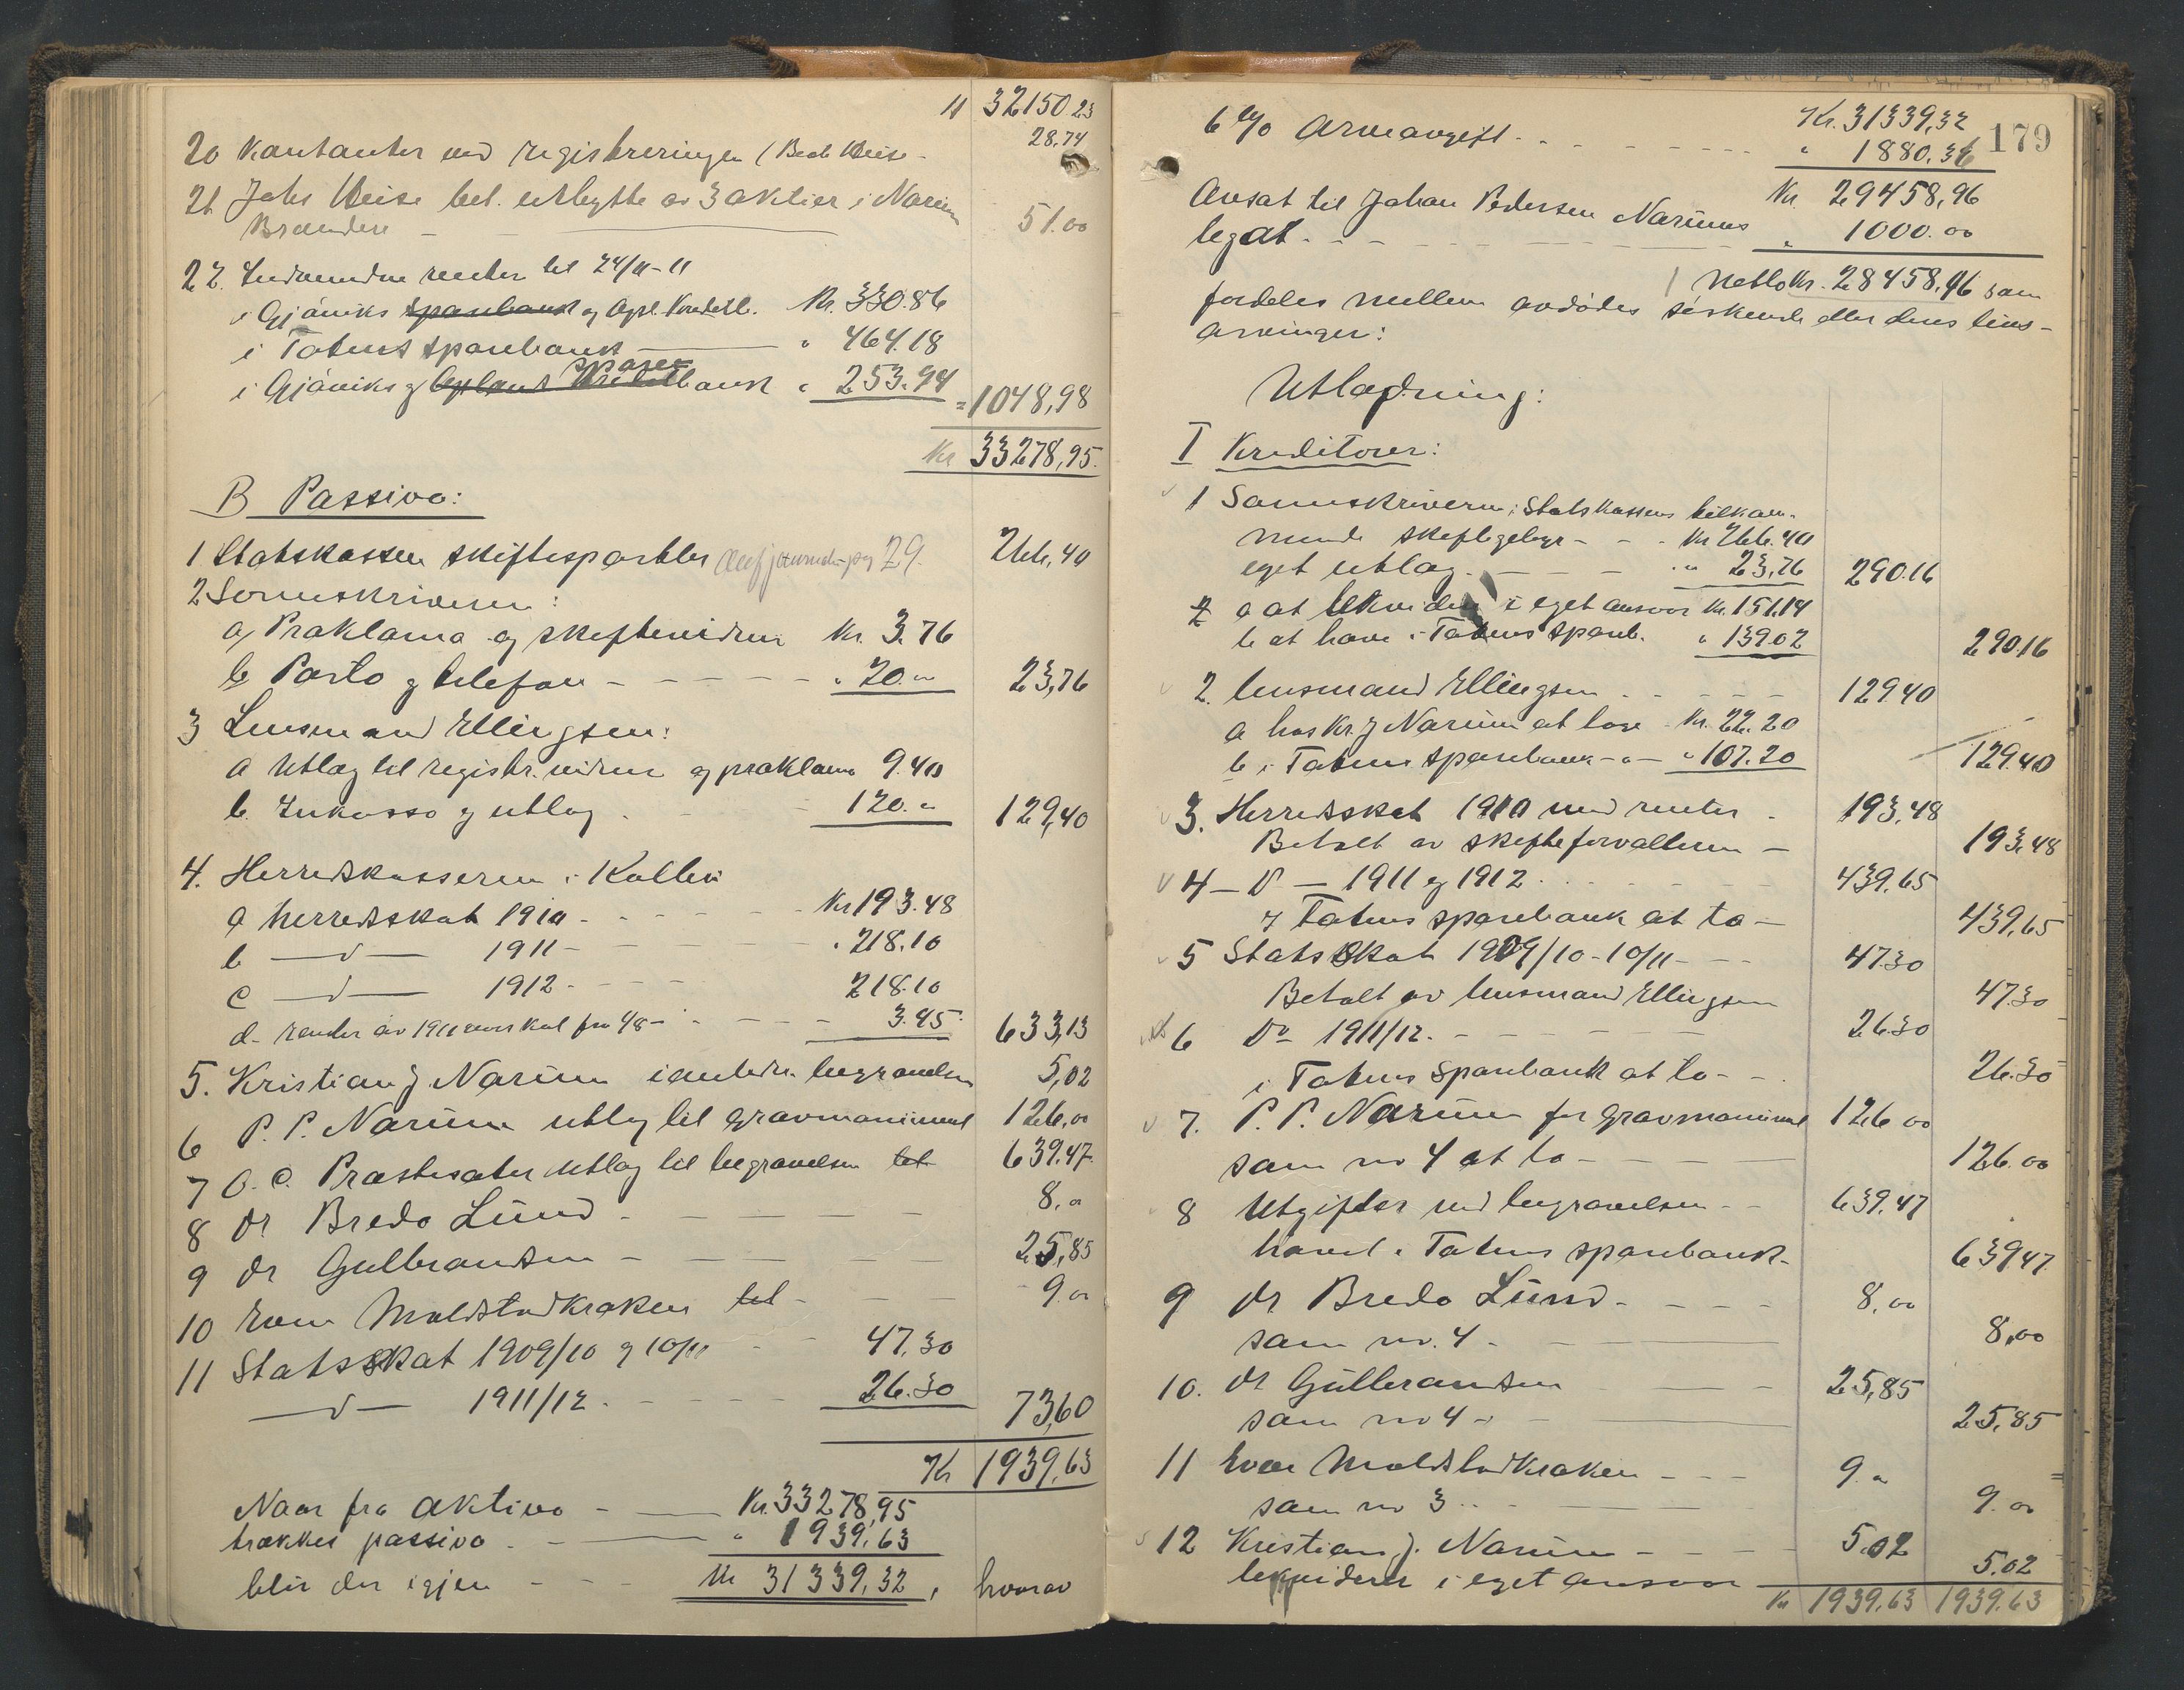 " 32150 23
20 Kontanter ved registreringen (Beate Weise - 28,74
21 Johs Weise bet. utbytte av 3 aktier i Narum
Brænderi - 51.00
22. Indvundne renter til 24/11-11
i Gjøviks og Opl. Kreditb. Kr. 330.86
i Totens sparebank " 464.18
i Gjøviks sparebank " 253.94 = 1048,98
Kr 33278,95.
B Passiva:
1 Statskassen skiftesportler 29. 266,40
2 Sorenskriveren:
a, Proklama og skiftevidne Kr. 3.76
b Porto og telefon - - - - - " 20." 23,76
3 Lensmand Ellingsen:
a Utlæg til registr. vidner og proklama 9.40
b. Inkasso og utlæg - 120." 129,40
4. Herredskassereren i Kolbu
a herredsskat 1910 - - - - Kr 193.48
b — d — 1911 - - - - " 218.10
c — d — 1912 - - - - 218.10
d - renter av 1911 - - - 3.45 633,13
5. Kristian J Narum begravelsen 5,02
6 P. P. Narum utlæg til gravmonument 126,00
7 O. C. Præstesæter utlæg til begravelsen tel 639.47
8 Dr Bredo Lund - - - - 8,"
9 Dr Gulbrandsen - - - - 25,85
10 Even Moldstadkraken tel - - - 9."
11 Statsskat 1909/10 og 10/11 - - 47.30
— d — 1911/12. - - - - 26.30 73,60
Kr 1939,63
Naar fra aktiva - Kr. 33278,95
trækkes passiva - " 1939,63
blir der igjen - - - Kr 31339,32, hvorav
179
Kr. 31339,32
6 % Arveavgift - - - - - - - " 1880,36
Kr. 29458,96
Avsat til Johan Pedersen Narums
legat - - - - " 1000.00
Netto Kr. 28458,96 som
fordeles mellem avdødes søskende eller deres livs-
arvinger:
Utlodning:
I Kreditorer:
1 Sorenskriveren: Statskassens tilkom-
mende skiftegebyr - - - Kr 266.40
eget utlæg - - - - " 23,76 290.16
a at likvidere i eget ansvar Kr. 151.14
b at hæve i Totens spareb. " 139.02 290.16
2. lensmand Ellingsen - - - - 129.40
a hos Kr. J Narum at hæve - Kr. 22.20
b i Totens sparebank - " - " 107.20 129.40
3. Herredsskat 1910 med renter - 193,48
Betalt av skifteforvalteren - 193,48
4 - D - 1911 og 1912 - - - - 439,65
i Totens sparebank at ta - 439,65
5 Statsskat 1909/10 - 10/11 - - - 47.30
Betalt av lensmand Ellingsen 47.30
6 Do 1911/12. - - - - 26.30
i Totens sparebank at ta - - 26.30
7. P. P. Narum for gravmonument 126 00
som no 4 at ta - - - - 126.00
8 Utgifter ved begravelsen - - 639.47
hævet i Totens sparebank - 639.47
9 Dr Bredo Lund - - - - 8,00
som no. 4 - 8,00
10. Dr Gulbrandsen - - 25,85
som no 4 - - 25,85
11 Even Moldstadkraken - - - 9."
som no 3 - - 9.00
12 Kristian J. Narum - - - - 5.02
likviderer i eget ansvar 5.02
Kr 1939,63 1939,63